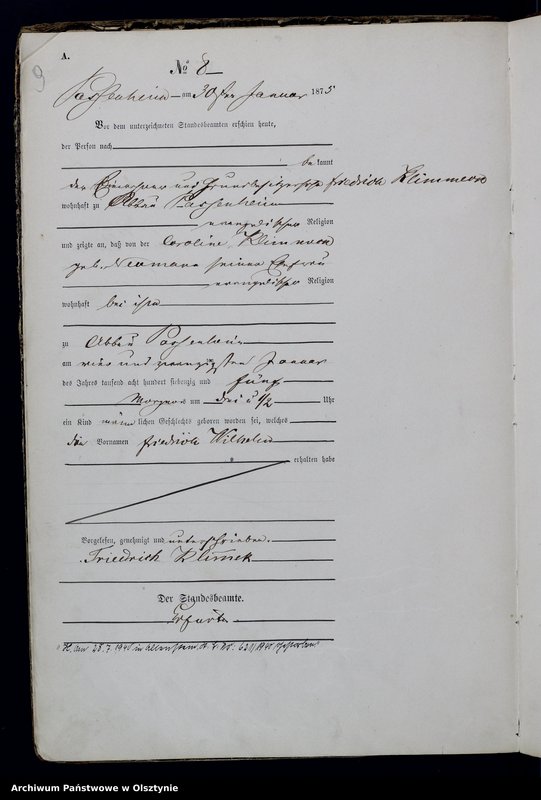 A.
9
№ 8
Passenheim am 30sten Januar 1875
Vor dem unterzeichneten Standesbeamten erschien heute,
der Person nach
bekannt
der Einwohner und Friedrich
wohnhaft zu Abbau Passenheim
evangelischer Religion
und zeigte an, daß von der Caroline
geb. Neumann seiner Ehefrau
evangelischer Religion
wohnhaft bei ihm
zu Abbau Passenheim
am vier und zwanzigsten Januar
des Jahres tausend acht hundert siebenzig und fünf
Morgens um drei u 1/2 Uhr
ein Kind männlichen Geschlechts geboren worden sei, welches
die Vornamen Friedrich Wilhelm
erhalten habe
Vorgelesen, genehmigt und unterschrieben.
Friedrich Klimek
Der Standesbeamte.
in Allenstein
Archiwum Państwowe w Olsztynie